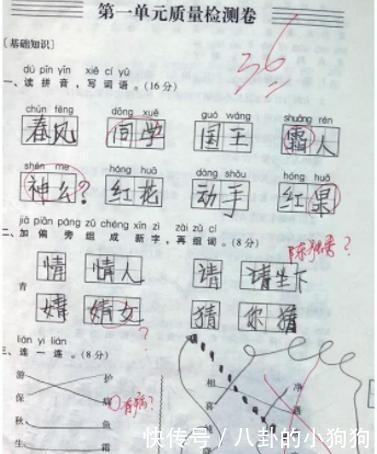 第一单元质量检测卷
36
〔基础知识〕
dú pīn yīn xiě cí yǔ
一、读拼音,写词语。(16分)
chūn fēng dòng xué guó wáng shuāng rén
春风 同学 国王 霜人
shén me hóng huā dòng shǒu hóng huǒ
神么? 红花 动手 红果
jiā piān páng zǔ chéng xīn zì zài zǔ cí
二、加偏旁组成新字,再组词。(8分)
青
情 情人 请 请坐下
婧 婧女 猜 你猜
?
lián yì lián
三、连一连。(8分)
游 护 相 净
保 病 喜 遇
有病?
秋 鱼
生 霜
快传号/八卦的小狗狗